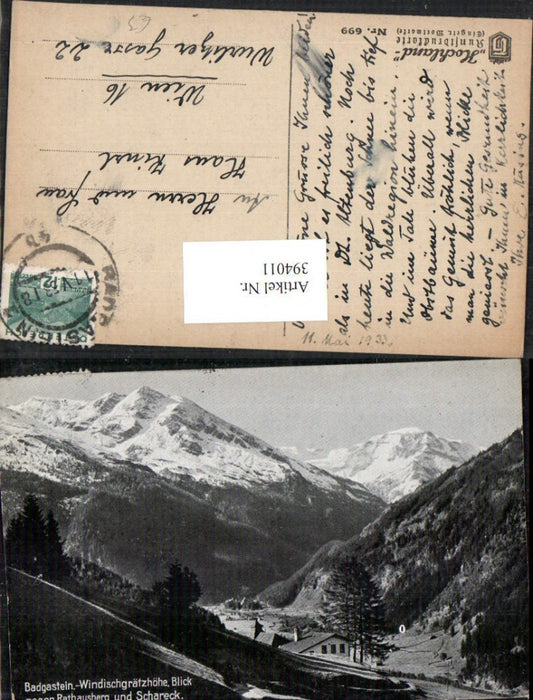 "Hochland"
Kunstdrucktarte
(Eingetr. Wortmarke)
Nr. 699
An Herrn und Frau
Hans Kinst
Wien 16
Wurlitzer Gasse 22
Grüsse Ihnen
es freilich schöner
als in Dt. Altenburg. Noch
heute liegt der Schnee bis tief
in die Waldregion hinein.
Und im Tale blühen die
Obstbäume. Überall wird
das Gemüt fröhlich, wenn
man die herrlichen Blicke
geniesst - Gute Gesundheit
wünscht Ihnen, in Herzlichkeit
Ihre E.
11. Mai 1933.
Artikel Nr.
394011
BADGASTEIN
Badgastein.-Windischgrätzhöhe, Blick
gegen Rathausberg und Schareck.